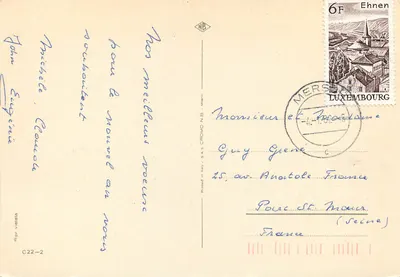 Nos meilleurs vœux
pour le nouvel an vous
souhaitent
Michele, Claude
John Eugénie
C22-2
6F Ehnen
LUXEMBOURG
MERS
Monsieur et Madame
Guy Grene
25, av. Anatole France
Parc St Maur
(Seine)
France